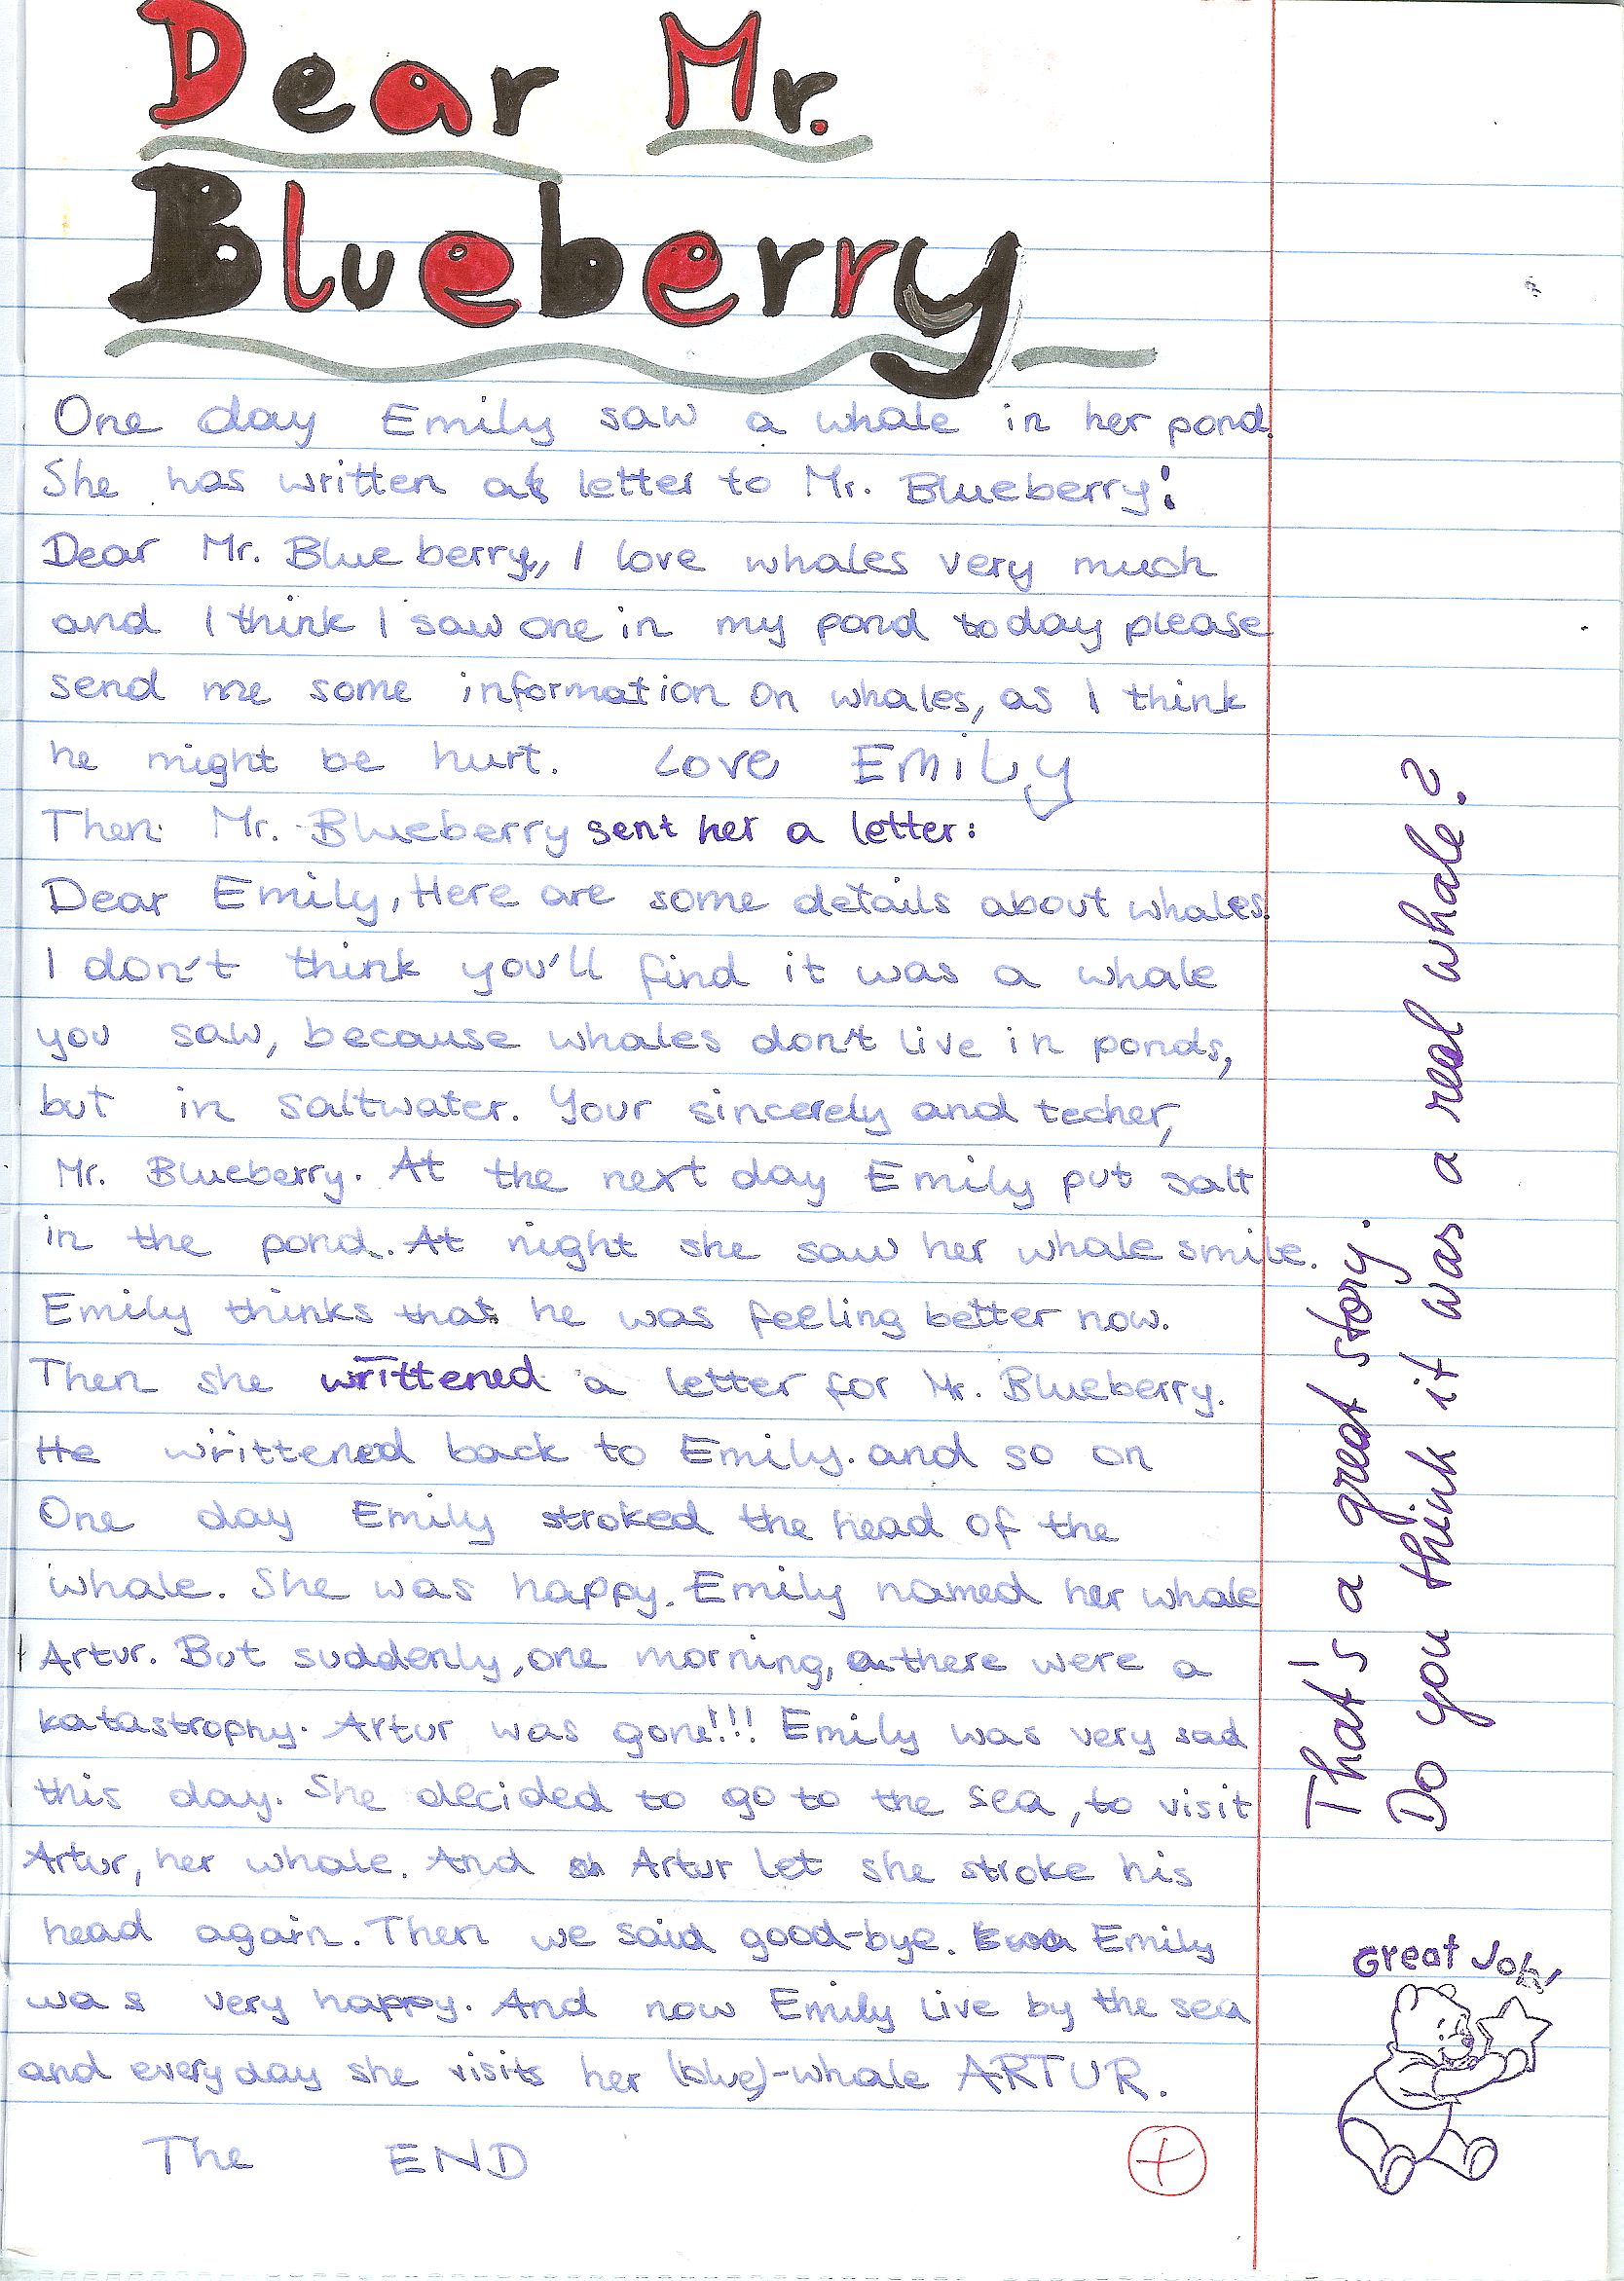 Dear Mr.
Blueberry
One day Emily saw a whale in her pond.
She has written a letter to Mr. Blueberry:
Dear Mr. Blueberry, I love whales very much
and I think I saw one in my pond today please
send me some information on whales, as I think
he might be hurt. Love Emily
Then Mr. Blueberry sent her a letter:
Dear Emily, Here are some details about whales.
I don't think you'll find it was a whale
you saw, because whales don't live in ponds,
but in saltwater. Your sincerely and techer,
Mr. Blueberry. At the next day Emily put salt
in the pond. At night she saw her whale smile.
Emily thinks that he was feeling better now.
Then she writtened a letter for Mr. Blueberry.
He writtened back to Emily. and so on
One day Emily stroked the head of the
whale. She was happy. Emily named her whale
Artur. But suddenly, one morning, there were a
katastrophy. Artur was gone!!! Emily was very sad
this day. She decided to go to the sea, to visit
Artur, her whale. And Artur let she stroke his
head again. Then we said good-bye. Emily
was very happy. And now Emily live by the sea
and everyday she visits her (blue)-whale ARTUR.
The END
That's a great story.
Do you think it was a real whale?
Great Job!